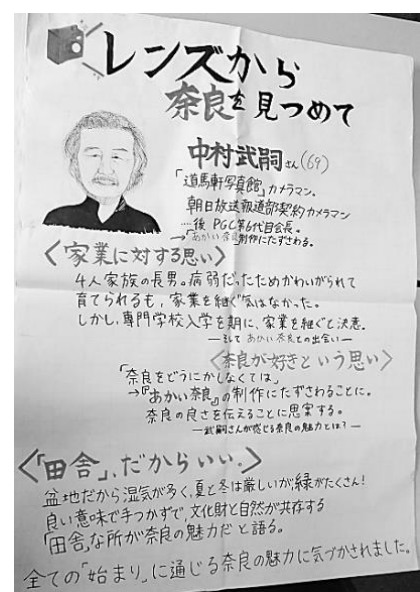 レンズから
奈良を見つめて
中村武嗣さん(69)
「道馬軒写真館」カメラマン。
朝日放送報道部契約カメラマン
……後 PGC第6代目会長。
→『あかい奈良』制作にたずさわる。
〈家業に対する思い〉
4人家族の長男。病弱だったためかわいがられて
育てられるも、家業を継ぐ気はなかった。
しかし、専門学校入学を期に、家業を継ぐと決意。
―そして あかい奈良との出会い―
〈奈良が好きという思い〉
「奈良をどうにかしなくては」
→『あかい奈良』の制作にたずさわることに。
奈良の良さを伝えることに思案する。
―武嗣さんが感じる奈良の魅力とは?―
〈「田舎」だからいい。〉
盆地だから湿気が多く、夏と冬は厳しいが緑がたくさん!
良い意味で手つかずで、文化財と自然が共存する
「田舎」な所が奈良の魅力だと語る。
全ての「始まり」に通じる奈良の魅力に気づかされました。